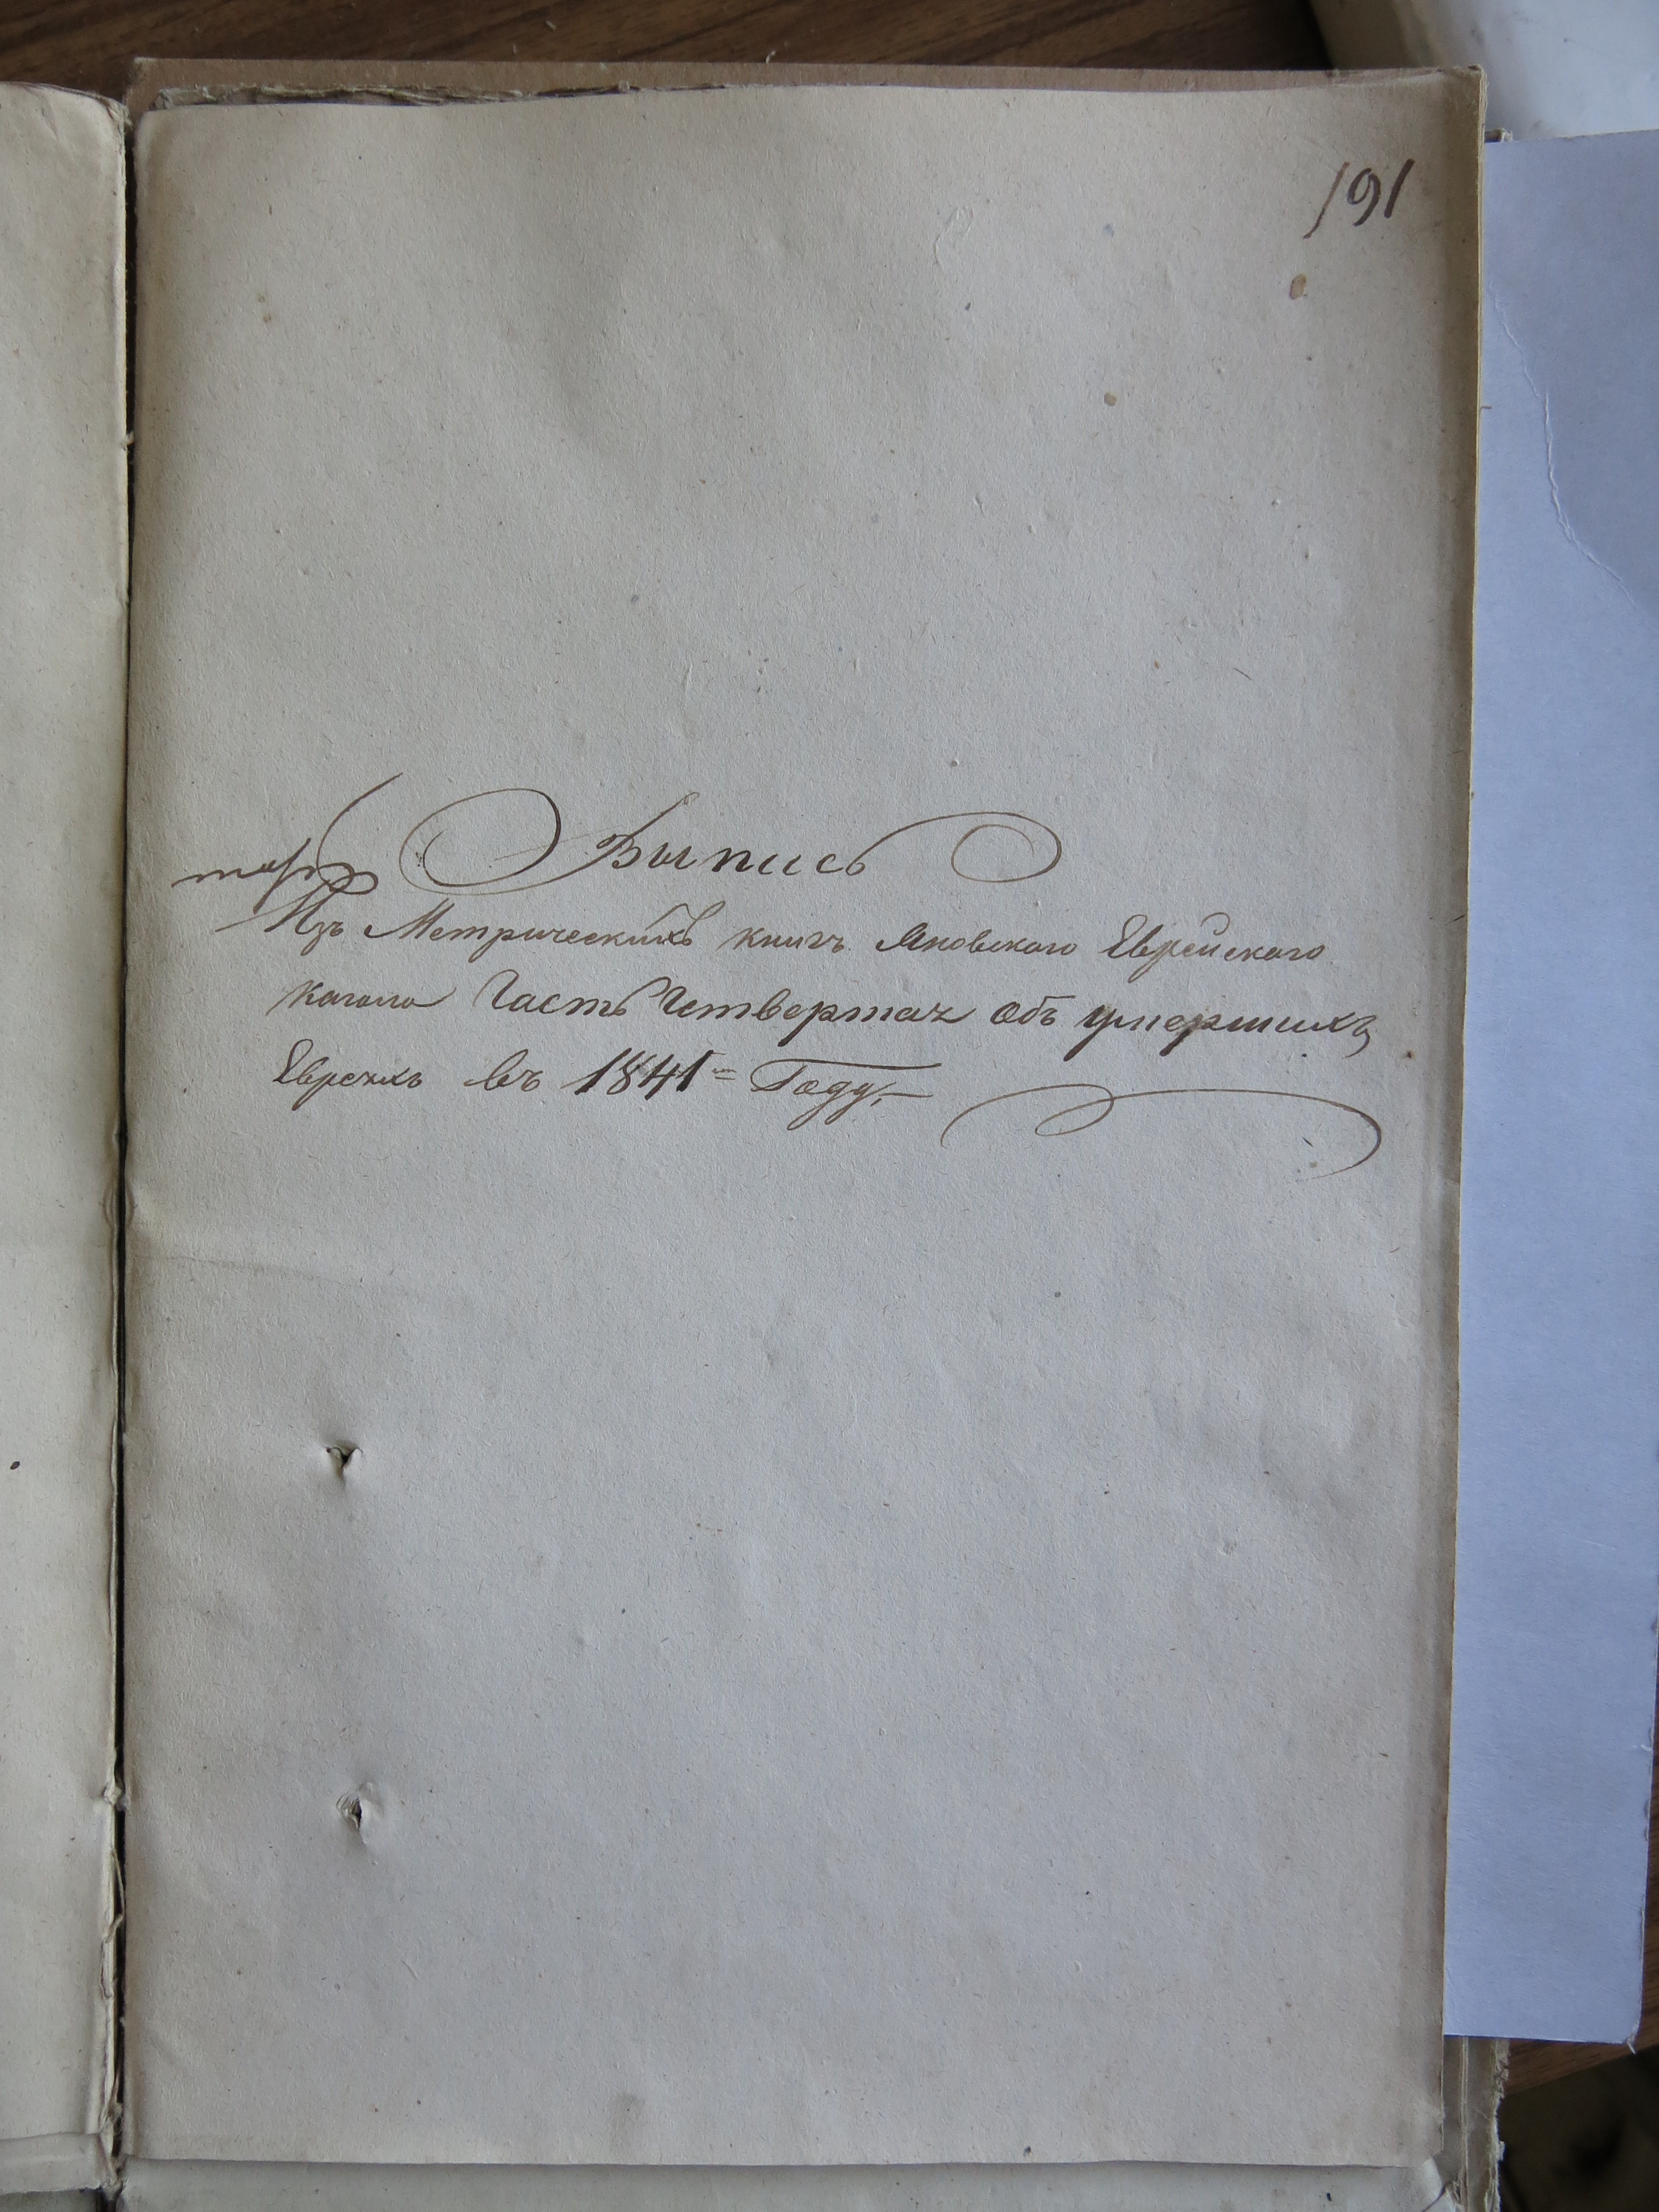 191
Выпись
Изъ Метрическихъ книгъ Яновского Еврейского
кагала Часть Четвертая Объ умершихъ
Евреяхъ въ 1841= Году,—